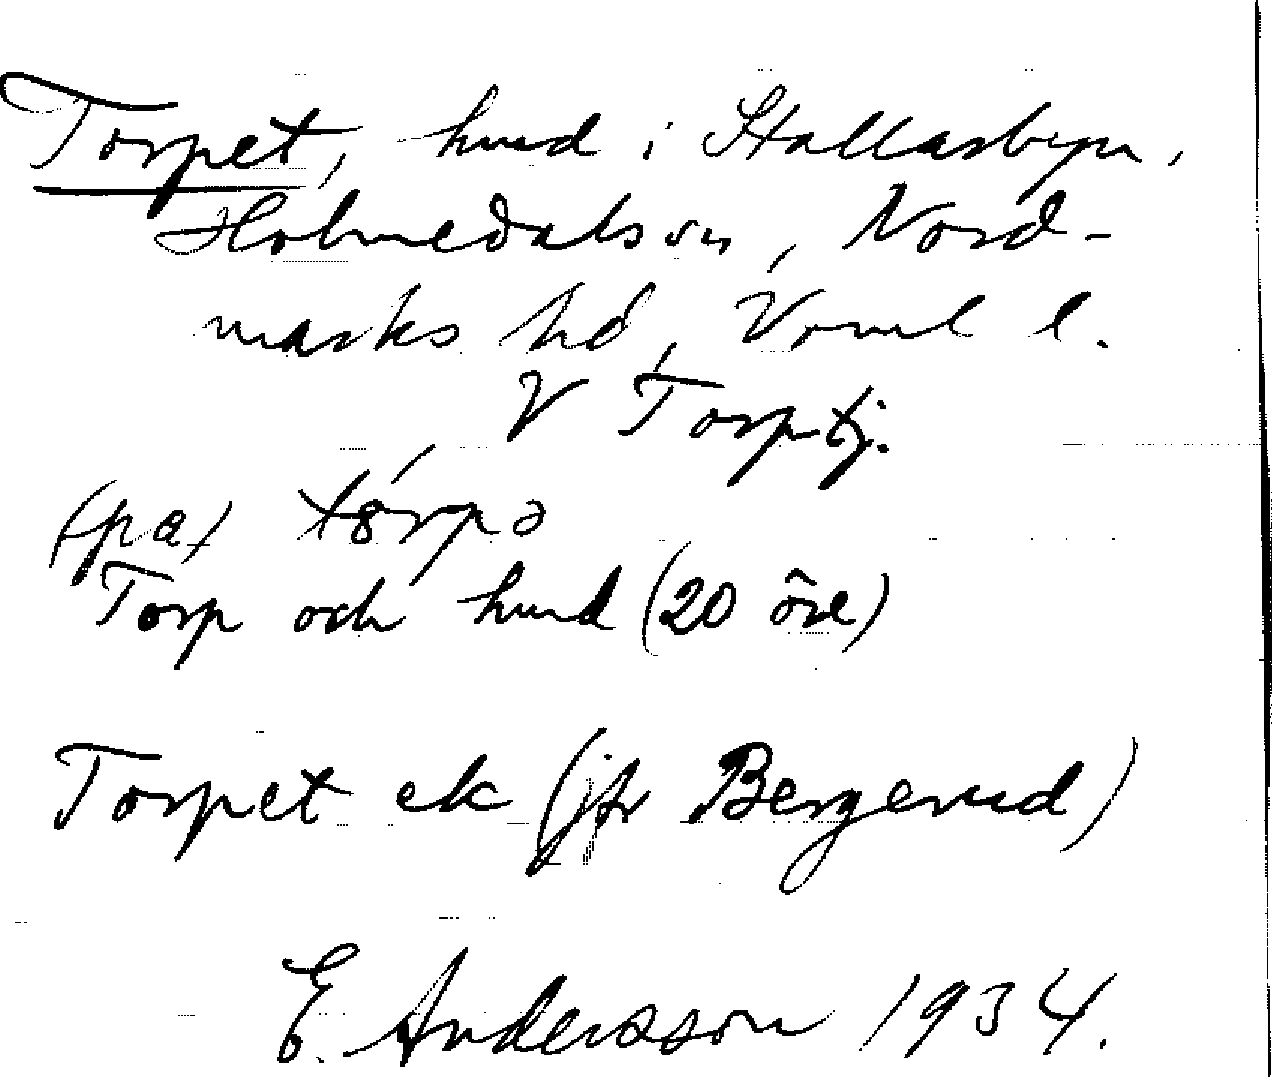 Torpet, hmd i Stallarbyn,
Holmedals sn, Nord-
marks hd, Vrml l.
V Torptj.
(pa) tɵ́rpə
Torp och hmd (20 öre)
Torpet ek (jfr Bergerud)
E. Andersson 1934.